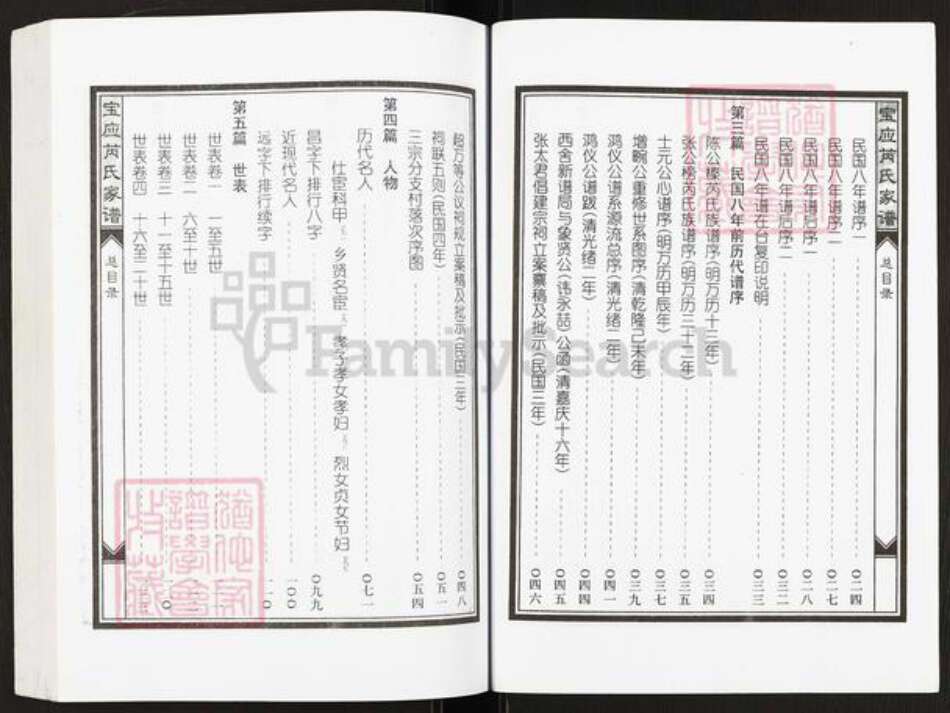 宝应芮氏家谱
总目录
民国八年谱序一 〇二四
民国八年谱序二 〇二七
民国八年谱后序一 〇二八
民国八年谱后序二 〇三二
民国八年谱在台复印说明 〇三三
第三篇 民国八年前历代谱序
陈公檖芮氏族谱序(明万历十三年) 〇三四
张公榜芮氏族谱序(明万历三十二年) 〇三五
士元公心谱序(明万历甲辰年) 〇三七
增畹公重修世系图序(清乾隆己未年) 〇三九
鸿仪公谱系源流总序(清光绪二年) 〇四一
鸿仪公谱跋(清光绪二年) 〇四四
西舍新谱局与象贤公(讳永喆)公函(清嘉庆十六年) 〇四五
张太君倡建宗祠立案禀稿及批示(民国三年) 〇四六
超万等公议祠规立案稿及批示(民国三年) 〇四八
祠联五则(民国四年) 〇五一
三宗分支村落次序图 〇五四
第四篇 人物
历代名人 〇七一
仕宦科甲 乡贤名宦 孝子孝女孝妇 烈女贞女节妇
昌字下排行八字 〇九九
近现代名人 一〇〇
远字下排行续字 一一〇
第五篇 世表
世表卷一 一至五世
世表卷二 六至十世
世表卷三 十一至十五世
世表卷四 十六至二十世
宝应芮氏家谱
总目录
FamilySearch